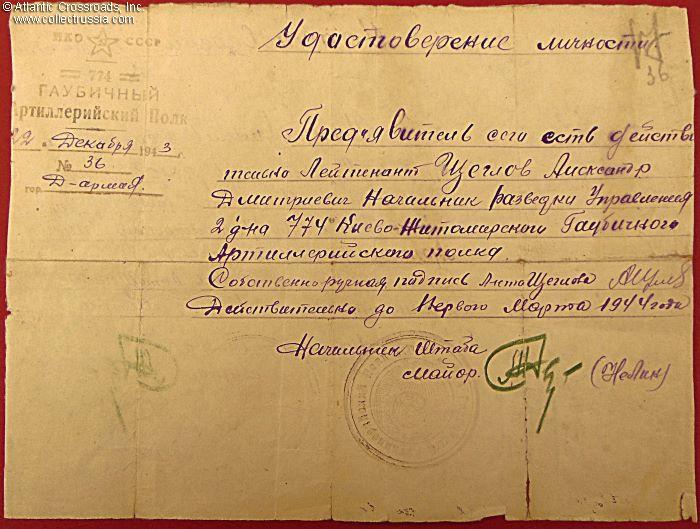 © Atlantic Crossroads, Inc.
www.collectrussia.com
НКО СССР
774
ГАУБИЧНЫЙ
Артиллерийский Полк
22 Декабря 1943
№ 36
гор. Д-армая
Удостоверение личности
36
Предъявитель сего есть действи
тельно Лейтенант Щеглов Александр
Дмитриевич Начальник разведки Управления
2 д-на 774 Киево-Житомирского Гаубичного
Артиллерийского полка.
Собственноручная подпись Л-та Щеглова
Действительно до Первого Марта 1944 года
Начальник Штаба
Майор.